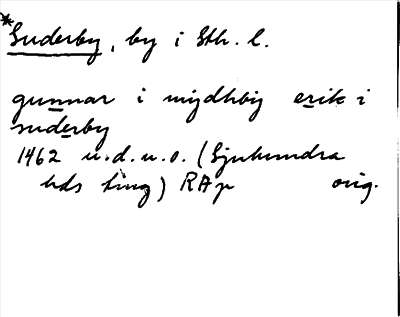 *Suderby, by i Sth. l.
gunnar i mijdhbij erik i
suderby
1462 u.d.u.o. (Sjuhundra
hds ting) RAp orig.